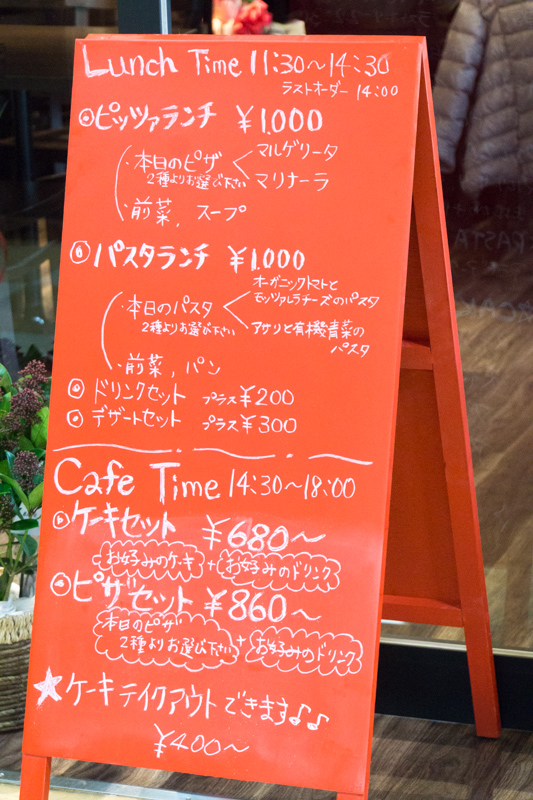 Lunch Time 11:30～14:30
ラストオーダー 14:00
◎ピッツァランチ ¥1.000
・本日のピザ マルゲリータ
2種よりお選び下さい マリナーラ
・前菜, スープ
◎パスタランチ ¥1.000
・本日のパスタ オーガニックトマトと
モッツァレラチーズのパスタ
2種よりお選び下さい アサリと有機青菜の
パスタ
・前菜, パン
◎ドリンクセット プラス¥200
◎デザートセット プラス¥300
Cafe Time 14:30～18:00
◎ケーキセット ¥680～
お好みのケーキ + お好みのドリンク
◎ピザセット ¥860～
本日のピザ
2種よりお選び下さい + お好みのドリンク
★ケーキテイクアウトできます♪♪
¥400～
PASTA